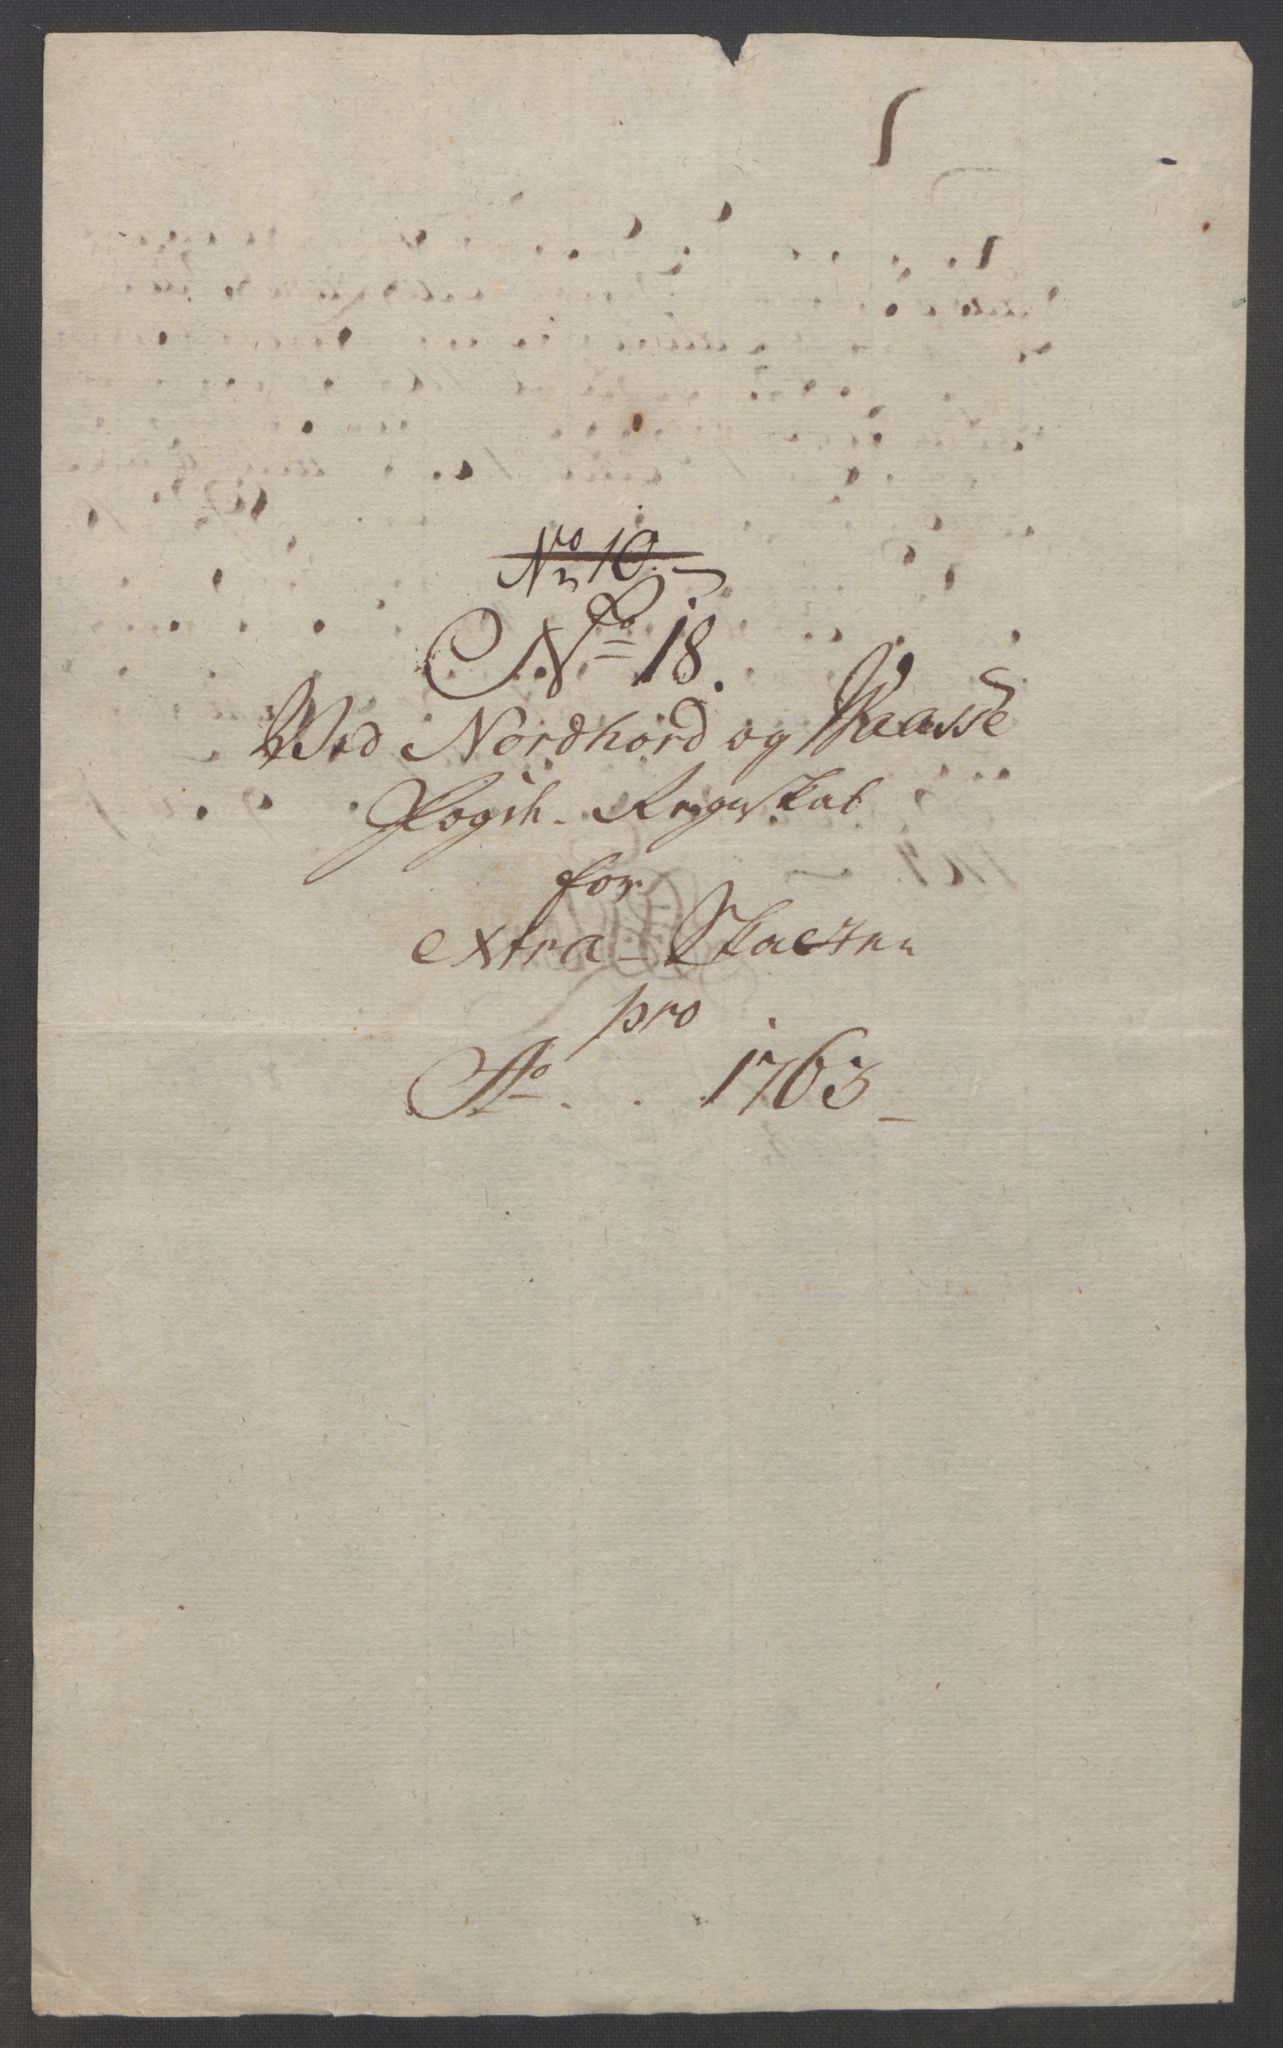 No 10.
No 18.
Ved Nordhord og Waasse
Fogdr. Regnskab
for
extra-Skatten
pro
Ao . . 1763